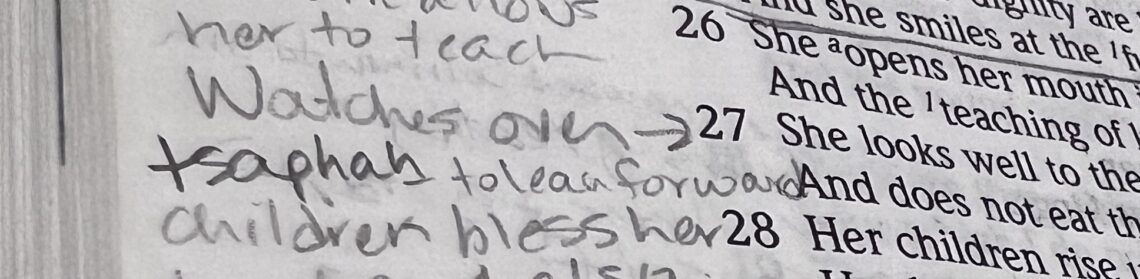 her to teach
Watches over →
tsaphah to lean forward
children bless her
dignity are
And she smiles at the
26 She ᵃopens her mouth
And the ¹teaching of
27 She looks well to the
And does not eat th
28 Her children rise